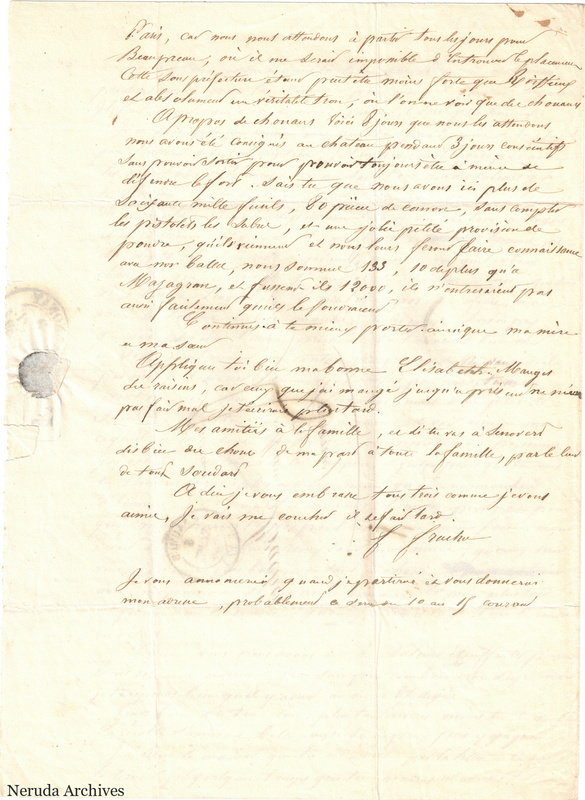 Paris, car nous nous attendons à partir tous les jours pour
Beaupreau, où il me serait impossible d'en trouver
Cette sous préfecture étant peut être moins forte que
et absolument un véritable trou, où l'on ne voit que des chouans
A propos de chouans Voici 8 jours que nous les attendons
nous avons été consignés au chateau pendant 3 jours consécutifs
sans pouvoir sortir pour pouvoir toujours être à même de
défendre le fort. Sais tu que nous avons ici plus de
Soixante mille fusils, 80 pièces de canon, sans compter
les pistolets les sabres, et une jolie petite provision de
poudre, qu'ils viennent et nous leurs ferons faire connaissance
avec nos balles, nous sommes 133, 10 de plus qu'à
Mazagran, et fussent ils 12000, ils n'entreraient pas
aussi facilement qu'ils le voudraient
Continues à te mieux porter ainsi que ma mère
et ma sœur
Appliques toi bien ma bonne Elisabeth. Manges
des raisins, car ceux que j'ai mangé jusqu'à présent ne m'ont
pas fait mal plus tard.
Mes amitiés à la famille, et
dis bien des choses de ma part à toute la famille, par le
de tout
Adieu je vous embrasse tous trois comme je vous
aime, Je vais me coucher il se fait tard.
Je vous annoncerai quand je partirai et vous donnerai
mon adresse, probablement ce sera du 10 au 15 courant
Neruda Archives